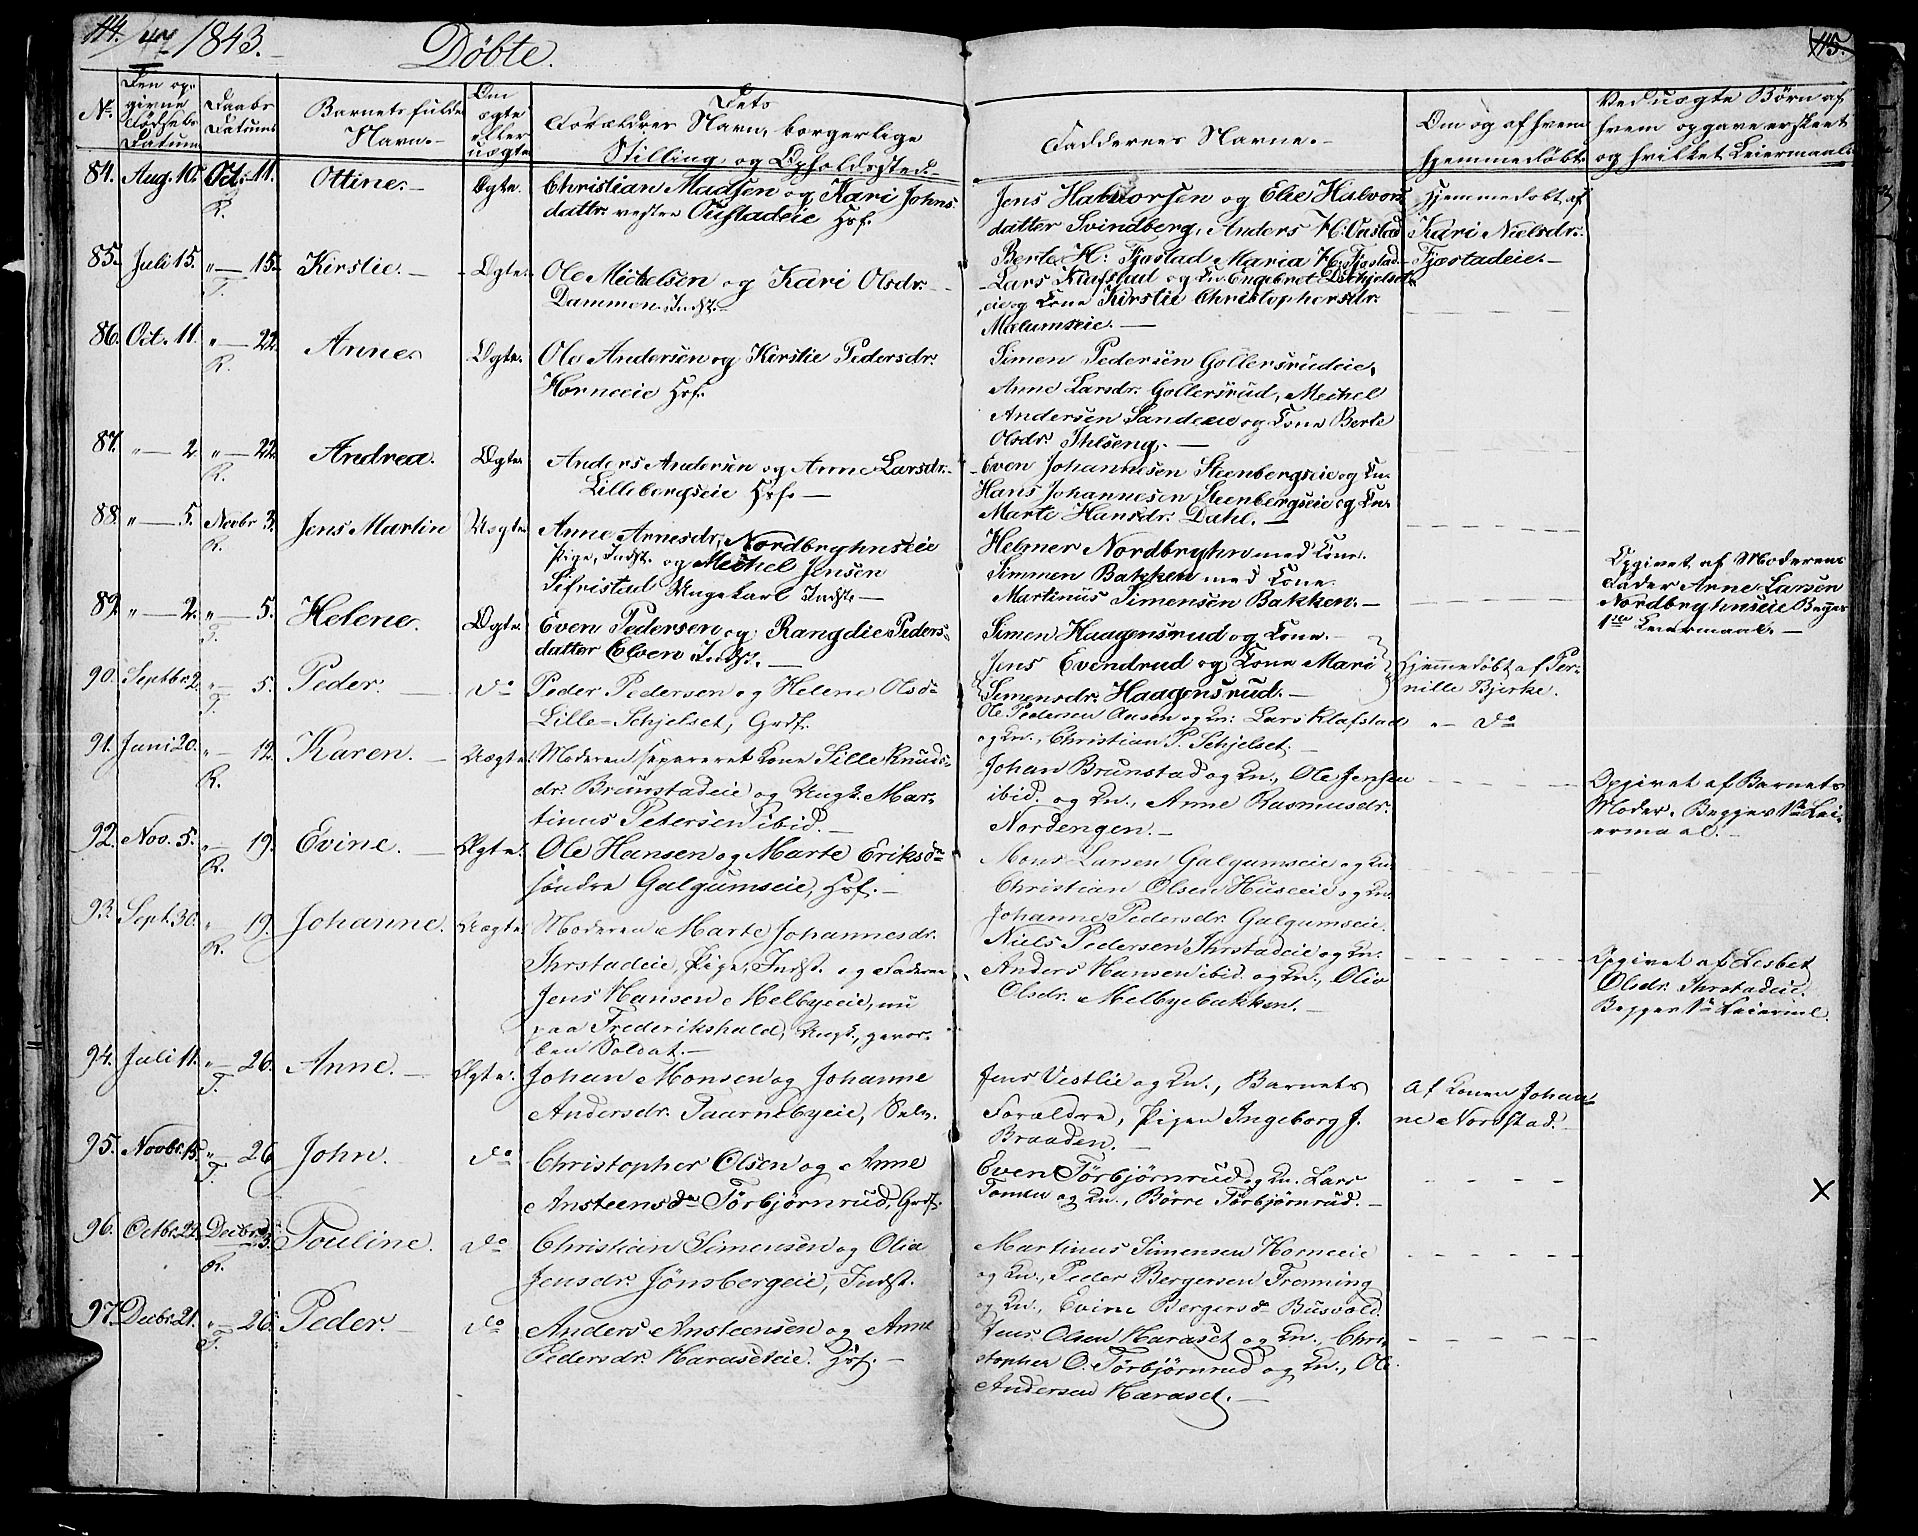 114. 47 1843. Döbte. 115.
No Den op-
givne
Födsels
Datum
Daabs
Datum
Barnets fulde
Navn.
Om
ægte
eller
uægte
Dets
Forældres Navn, borgerlige
Stilling, og Opholdssted.
Faddernes Navne.
Om og af hvem
hjemmedöbt.
Ved uægte Börn af
hvem opgave er skeet
og hvilket Leiermaal.
84. Aug. 10. Oct. 11. Ottine. Ægte. Christian Madsen og Kari Johns-
R. datter vestre Oustadeie Hsf.
Jens Halvorsen og Elie Halvors-
datter Svindberg, Anders H. Oustad
Berte H. Fjøstad Maria H. Fjøstad
Hjemmedöbt af
Kari Nielsdr.
Fjøstadeie.
85. Juli 15. " 15. Kirstie. Ægte. Ole Michelsen og Kari Olsdr.
T. Dammen Indst.
Lars Klafstad og Kn. Engebret Schjelset-
eie og Kone Kirstie Christophersdr.
Malumseie.
86. Oct. 11. " 22. Anne. Ægte. Ole Andersen og Kirstie Pedersdr.
R. Horneeie Hsf.
Simen Pedersen Gollersrudeie,
Anne Larsdr. Gollersrud, Michel
Andersen Sandeeie og Kone Berte
Olsdr. Ihlseng.
87. " 2 " 22. Andrea. Ægte Anders Andersen og Anne Larsdr.
R. Lillebergseie Hsf.
Even Johannesen Steenbergseie og Kn.
Hans Johannesen Steenbergseie og Kn.
Marte Hansdr. Dahl.
88. " 5. Novbr 3. Jens Martin Uægte Anne Arnesdr. Nordbryhnseie
R. Pige, Indst. og Michel Jensen
Sifristad Ungekarl Indst.
Helmer Nordbryhn med Kone.
Simmen Bakken med Kone.
Martinus Simensen Bakken.
Opgivet af Moderens
Fader Arne Larsen
Nordbryhnseie Begges
1ste Leiermaal.
89. " 2. " 5. Helene. Ægte Even Pedersen og Rangdie Peders-
T. datter Elven Indst.
Simen Haagensrud og Kone.
Jens Evendrud og Kone Mari
Simensdr. Haagensrud.
90. Septbr. 2. " 5. Peder. do Peder Pedersen og Helene Olsdr
T. Lille-Schjelset, Grdf.
Ole Pedersen Aasen og Kn. Lars Klafstad
og Kn., Christian P. Schjelset.
Hjemmedöbt af Per-
nille Bjerke.
" do
91. Juni 20. " 12. Karen. Uægte Moderen separeret Kone Sille Knuds-
R. dr. Brunstadeie og Ungk. Mar-
tinus Petersen ibid.
Johan Brunstad og Kn., Ole Jensen
ibid. og Kn., Anne Rasmusdr.
Nordengen.
Opgivet af Barnets
Moder. Begges 1te Lei-
ermaal.
92. Nov. 5. " 19. Evine. Ægte. Ole Hansen og Marte Eriksdr
R. söndre Galgumseie, Hsf.
Mons Larsen Galgumseie og Kn.
Christian Olsen Huseeie og Kn.
Johanne Pedersdr. Galgumseie.
93. Sept. 30. " 19. Johanne. Uægte Moderen Marte Johannesdr.
R. Ihrstadeie, Pige, Indst. og Faderen
Jens Hansen Melbyeeie, nu
paa Frederikshald, Ungk., gevor-
ben Soldat.
Niels Pedersen Ihrstadeie og Kn.
Anders Hansen ibid. og Kn., Olia
Olsdr. Melbyebakken.
Opgivet af Lisbet
Olsdr. Ihrstadeie.
Begges 1te Leierml.
94. Juli 11. " 26. Anne. Ægte. Johan Monsen og Johanne
T. Andersdr. Taarnebyeie, Selv.
Jens Vestlie og Kn., Barnets
Forældre, Pigen Ingeborg J.
Braaden.
Af Konen Johan-
ne Nordstad.
95. Novbr. 15. " 26 John. do Christopher Olsen og Anne
T. Ansteensdr Törbjörnrud, Grdf.
Even Törbjörnrud og Kn. Lars
Tomter og Kn., Börre Törbjörnrud.
X
96. Octbr. 22. Decbr. 3. Pouline. do Christian Simensen og Olia
R. Jensdr. Jönsbergeie, Indst.
Martinus Simensen Horneeie
og Kn., Peder Bergersen Frenning
og Kn., Evine Bergersdr Busvold.
97. Decbr. 21. " 26. Peder. do Anders Ansteensen og Anne
T. Pedersdr. Haraseteie. Hsf.
Jens Olsen Haraset og Kn., Chri-
stopher O. Törbjörnrud og Kn., Ole
Andersen Haraset.